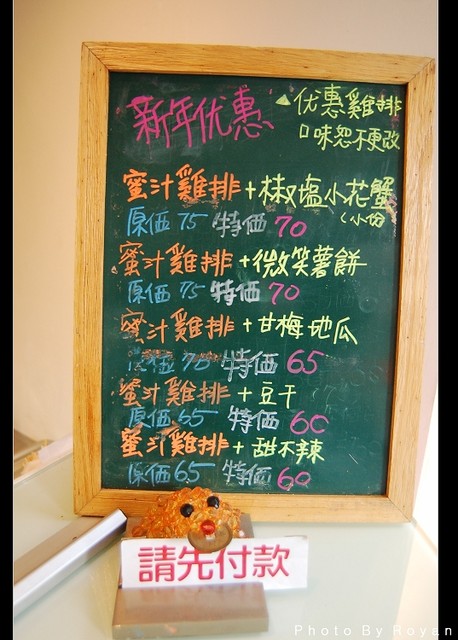 新年优惠
▲优惠雞排
口味恕不更改
蜜汁雞排+椒塩小花蟹
(小份
原価75 特価70
蜜汁雞排+微笑薯餅
原価75 特価70
蜜汁雞排+甘梅地瓜
原価70 特価65
蜜汁雞排+豆干
原価65 特価60
蜜汁雞排+甜不辣
原価65 特価60
請先付款
Photo By Royan